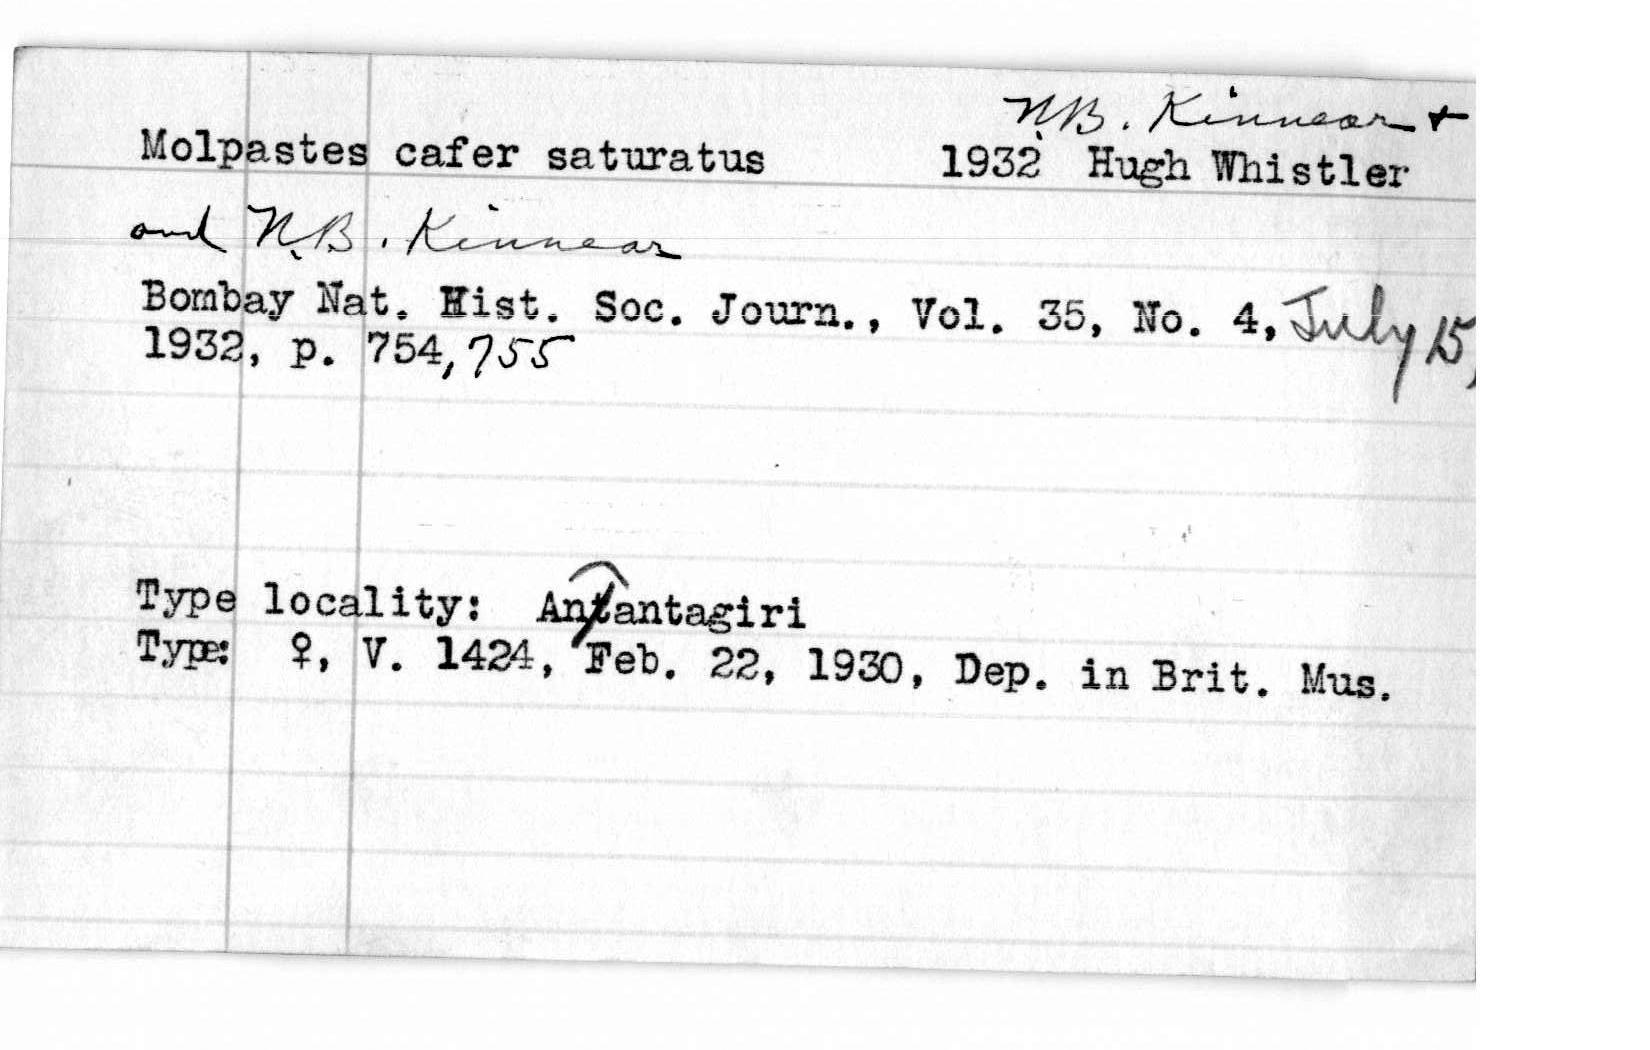 N.B. Kinnear +
Molpastes cafer saturatus 1932 Hugh Whistler
and N.B. Kinnear
Bombay Nat. Hist. Soc. Journ., Vol. 35, No. 4, July 15,
1932, p. 754, 755
Type locality: Antantagiri
Type: ♀, V. 1424, Feb. 22, 1930, Dep. in Brit. Mus.